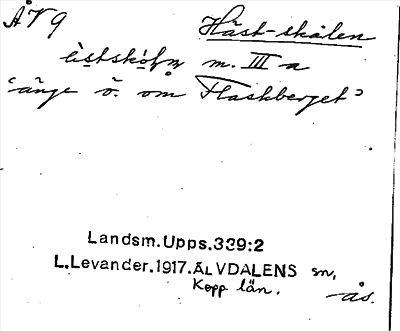 ÅV9 Häst-skålen
m. III a
"änge ö. om Flaskberget"
Landsm.Upps.339:2
L.Levander.1917.ÄLVDALENS sn,
Kopp. län.
ås.